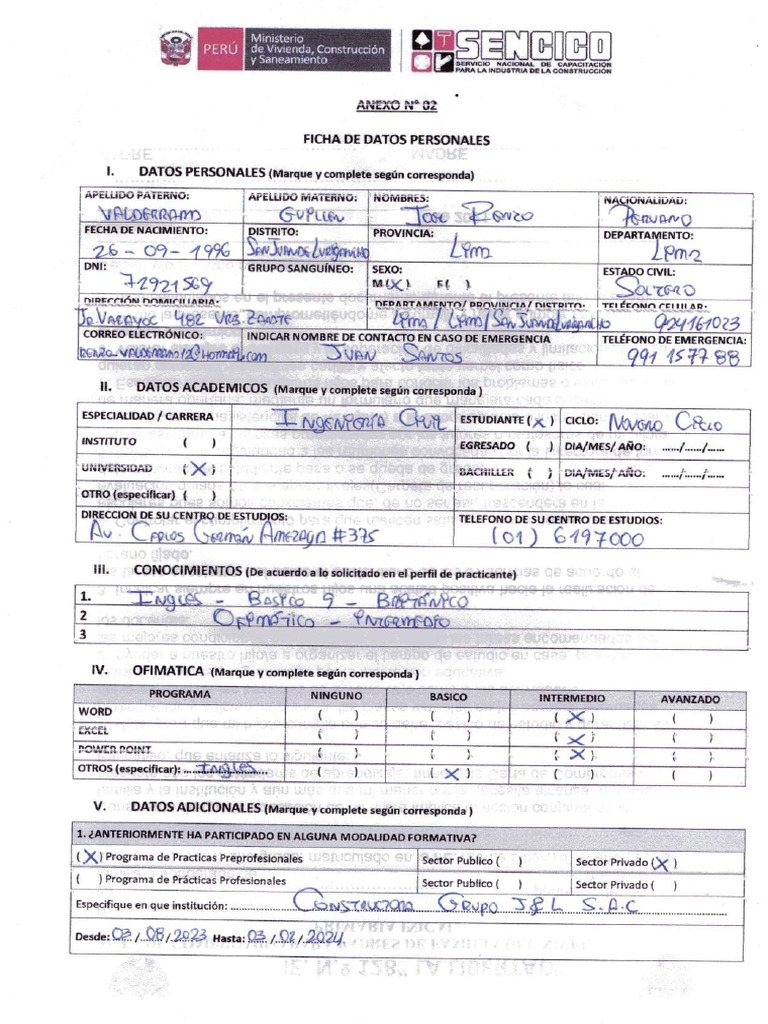 PERÚ Ministerio de Vivienda, Construcción y Saneamiento
SENCICO
SERVICIO NACIONAL DE CAPACITACIÓN
PARA LA INDUSTRIA DE LA CONSTRUCCIÓN
ANEXO N° 02
FICHA DE DATOS PERSONALES
I. DATOS PERSONALES (Marque y complete según corresponda)
APELLIDO PATERNO: APELLIDO MATERNO: NOMBRES: NACIONALIDAD:
VALDERRAMA JOSE RENZO PERUANO
FECHA DE NACIMIENTO: DISTRITO: PROVINCIA: DEPARTAMENTO:
26 - 09 - 1996 San Juan de Lurigancho LIMA LIMA
DNI: GRUPO SANGUÍNEO: SEXO: ESTADO CIVIL:
72921569 M (X) F ( ) SOLTERO
DIRECCIÓN DOMICILIARIA: DEPARTAMENTO/ PROVINCIA/ DISTRITO: TELÉFONO CELULAR:
482 URB. ZARATE Lima / Lima / San Juan Lurigancho 924161023
CORREO ELECTRÓNICO: INDICAR NOMBRE DE CONTACTO EN CASO DE EMERGENCIA TELÉFONO DE EMERGENCIA:
JUAN SANTOS 991 157788
II. DATOS ACADEMICOS (Marque y complete según corresponda )
ESPECIALIDAD / CARRERA INGENIERÍA CIVIL ESTUDIANTE (X) CICLO: NOVENO CICLO
INSTITUTO ( ) EGRESADO ( ) DIA/MES/ AÑO: ....../....../......
UNIVERSIDAD (X) BACHILLER ( ) DIA/MES/ AÑO: ....../....../......
OTRO (especificar) ( )
DIRECCION DE SU CENTRO DE ESTUDIOS: TELEFONO DE SU CENTRO DE ESTUDIOS:
AV. CARLOS GERMÁN AMEZAGA #375 (01) 6197000
III. CONOCIMIENTOS (De acuerdo a lo solicitado en el perfil de practicante)
1. INGLES - BASICO 9 - BRITÁNICO
2 OFIMÁTICO - INTERMEDIO
3
IV. OFIMATICA (Marque y complete según corresponda )
PROGRAMA NINGUNO BASICO INTERMEDIO AVANZADO
WORD ( ) ( ) (X) ( )
EXCEL ( ) ( ) (X) ( )
POWER POINT ( ) ( ) (X) ( )
OTROS (especificar): INGLES ( ) (X) ( ) ( )
V. DATOS ADICIONALES (Marque y complete según corresponda )
1. ¿ANTERIORMENTE HA PARTICIPADO EN ALGUNA MODALIDAD FORMATIVA?
(X) Programa de Practicas Preprofesionales Sector Publico ( ) Sector Privado (X)
( ) Programa de Prácticas Profesionales Sector Publico ( ) Sector Privado ( )
Especifique en que institución: CONSTRUCTORA GRUPO J&L S.A.C
Desde: 03/08/2023 Hasta: 03/02/2024